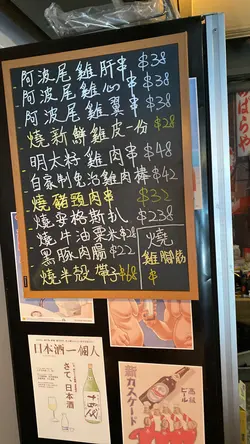 阿波尾雞肝串 $38
阿波尾雞心串 $38
阿波尾雞翼串 $38
燒新鮮雞皮一份 $28
明太籽雞肉串 $48
自家制免治雞肉棒 $42
燒豬頸肉串 $32
燒安格斯扒 $238
燒牛油粟米 $28
黑豚肉腸 $22
燒半殼帶子 $68
燒
雞腳筋
$
日本酒一個人
さて、日本酒
新カスケード
ビール
はらや